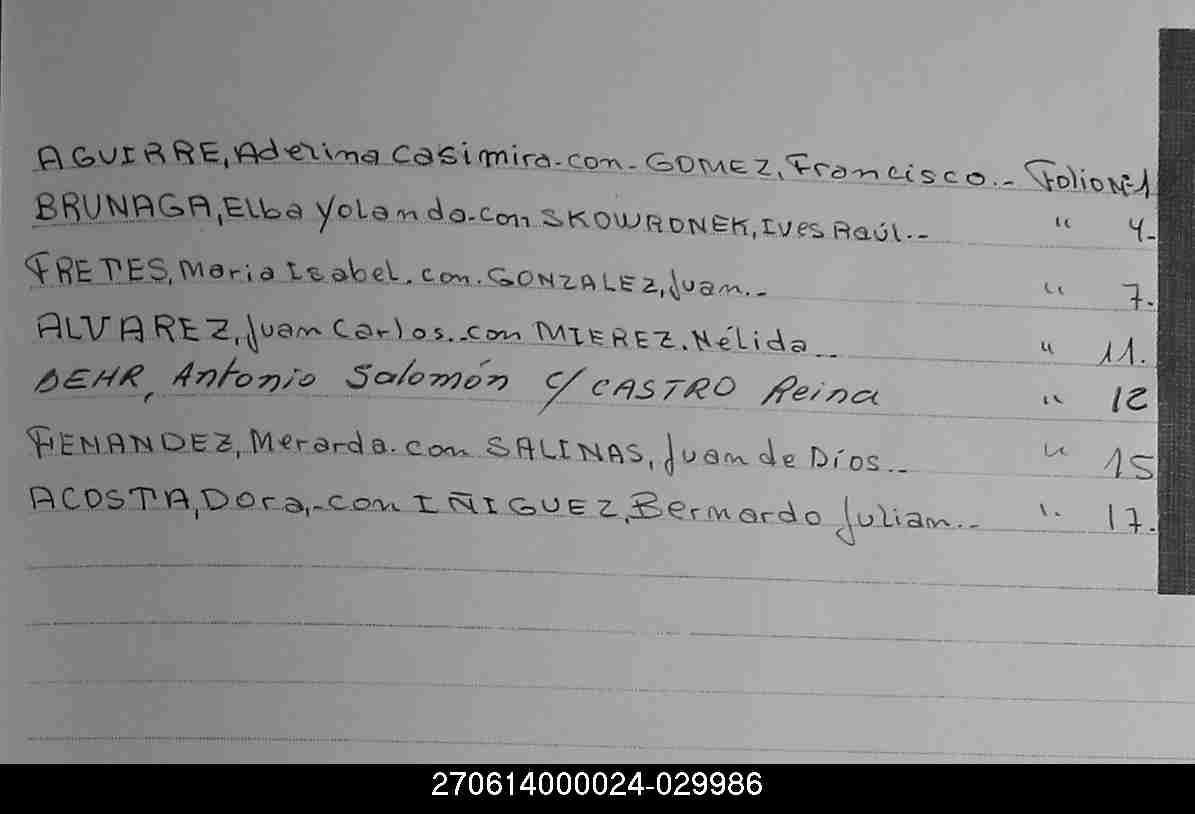 AGUIRRE, Aderina Casimira.con.GOMEZ, Francisco.- Folio Nº1
BRUNAGA, Elba Yolanda.con SKOWRONEK, Ives Raúl.- " 4.-
FRETES, Maria Isabel.con.GONZALEZ, Juan.- " 7.
ALVAREZ, Juan Carlos.con MIEREZ.Nélida.- " 11.
DEHR, Antonio Salomón c/ CASTRO Reina " 12
FENANDEZ, Merarda.con SALINAS, Juan de Dios.- " 15
ACOSTA, Dora,-con IÑIGUEZ, Bernardo Julian.- " 17.
270614000024-029986